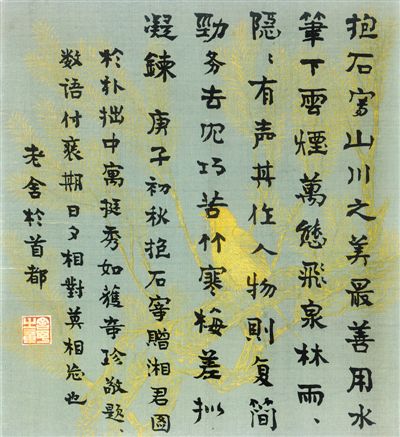 抱石寫山川之美最善用水
筆下雲煙萬態飛泉林雨、
隱、有声其作人物則复簡
勁务去巧苦竹寒梅差拟
凝鍊 庚子初秋抱石宰贈湘君图
於朴拙中寓挺秀如獲奇珍敬題、
数语付裱期日夕相對莫相忘也
老舍於首都